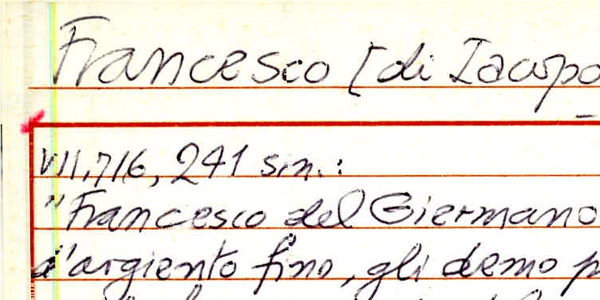 Francesco [di Iacopo
VII,716, 241 sin.:
"Francesco del Giermano
d'argiento fino, gli demo p